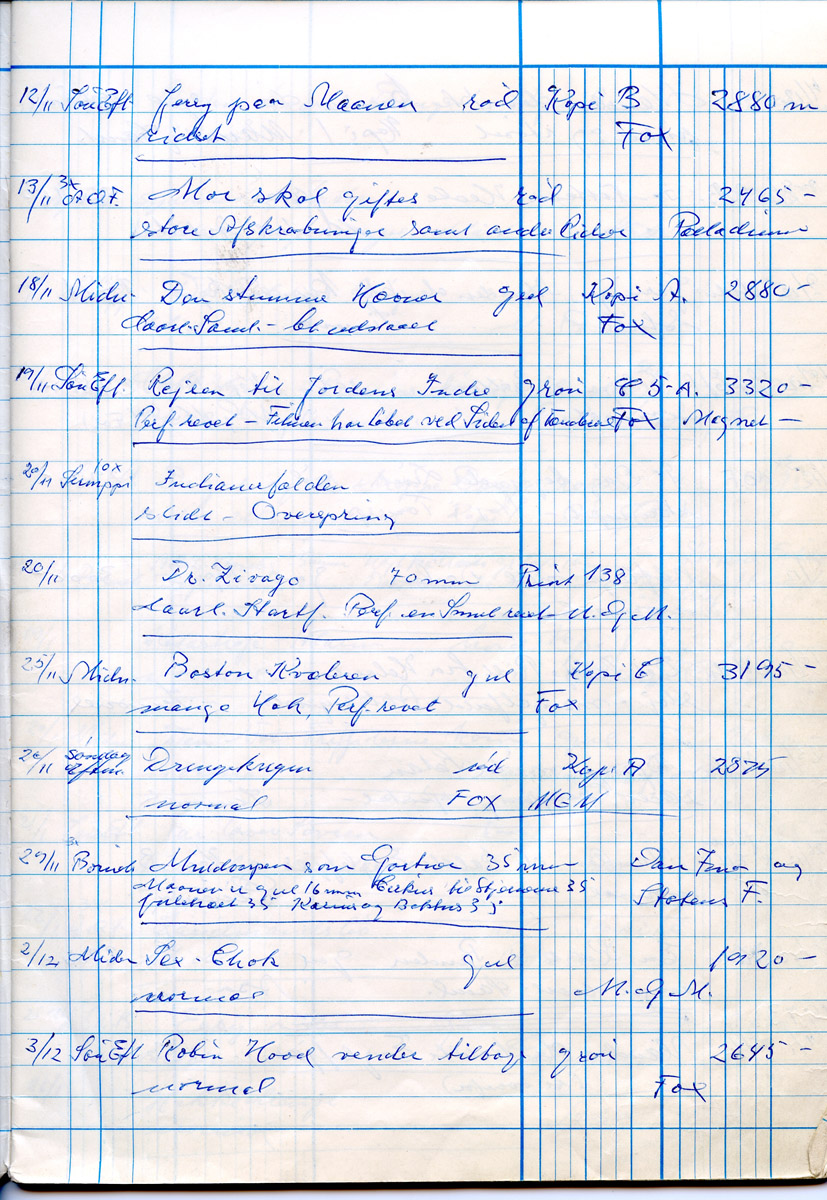 12/11 Søn Eft Jeg paa Maanen rød Kopi B 2880 m
ridset Fox
13/11 3x O.F. Mor skal giftes rød 2465 -
store Afskrabninger samt andre Palladium
18/11 Midn. Den stumme gul Kopi A. 2880 -
daarl. Saml. - Fox
19/11 Søn Eft. Rejsen til Jordens Indre grøn 5-A. 3320 -
Perf. revet - Filmen har løbet ved Siden af Fox Magnet -
20/11 10x Indianerfælden
slidt - Overspring
20/11 Dr. Zivago 70 mm Print 138
daarl. Startf. Perf. en Smule revet M.G.M.
25/11 Midn. Boston Kvæleren gul Kopi C 3195 -
mange Hak, Perf. revet Fox
26/11 Søndag Eftm. Drengekrigen rød Kopi A 2875
normal FOX MGM
29/11 3x Muldvarpen som Gartner 35 mm Dan Ina og
Maanen gul 16 mm Cirkus til Stjernerne 35 Statens F.
35 og 35
2/12 Midn Sex-Chok gul 1920 -
normal M.G.M.
3/12 Søn Eft Robin Hood vender tilbage grøn 2645 -
normal Fox